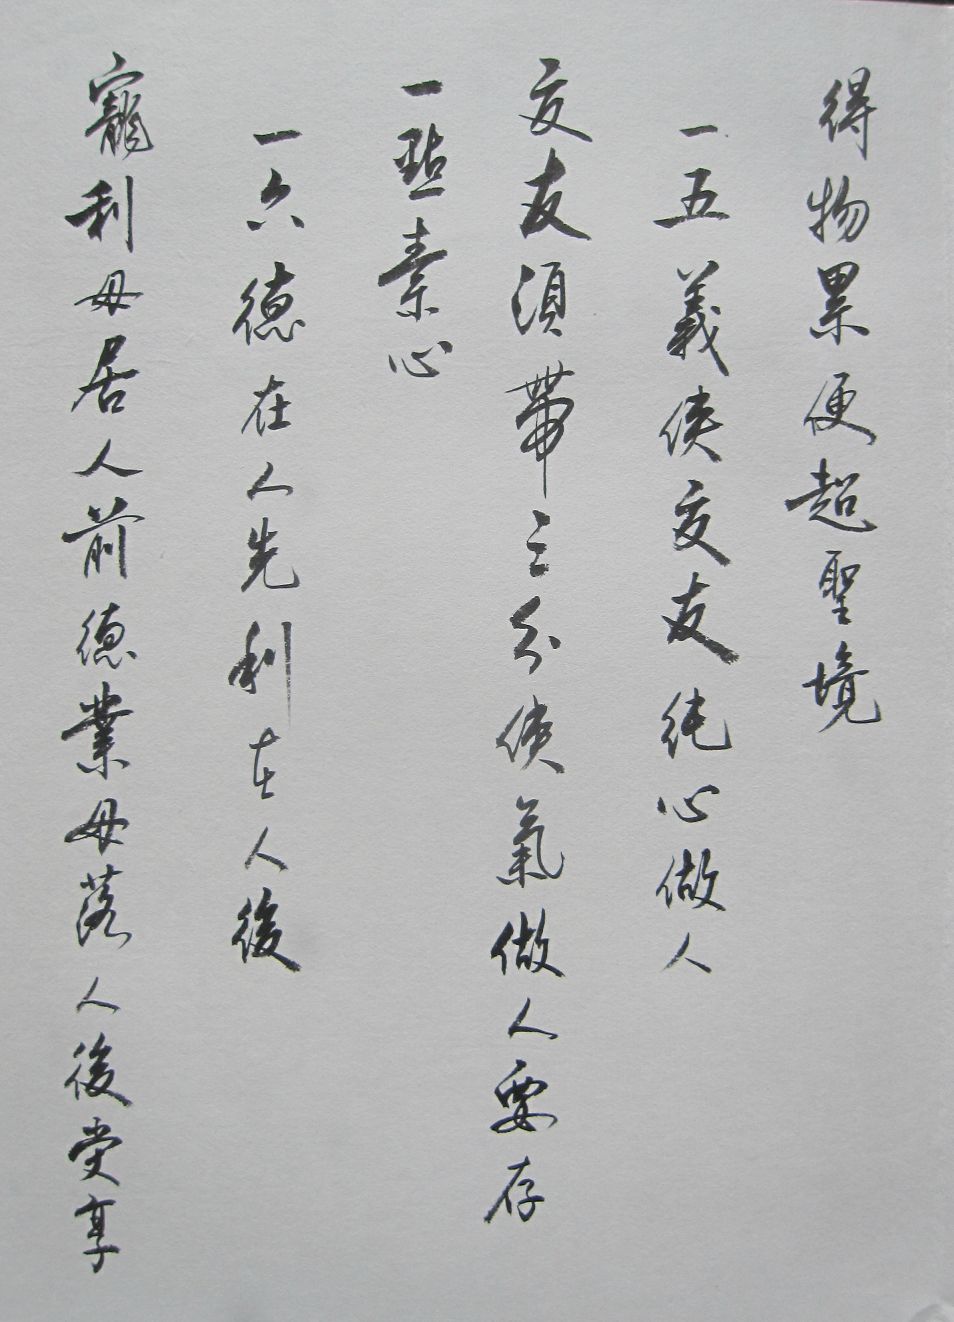 得物累便超聖境
一五義俠交友純心做人
交友須帶三分俠氣做人要存
一點素心
一六德在人先利在人後
寵利毋居人前德業毋落人後受享